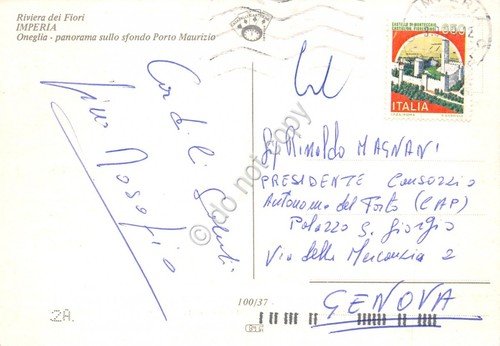 Riviera dei Fiori
IMPERIA
Oneglia - panorama sullo sfondo Porto Maurizio
Cordiali Saluti
CASTELLO DI MONTECCHIO
CASTIGLION FIORENTINO
650
ITALIA
Sig Rinaldo MAGNANI
PRESIDENTE Consorzio
Autonomo del Porto (CAP)
Palazzo S. Giorgio
Via della Mercanzia 2
GENOVA
100/37
2A.
do not copy